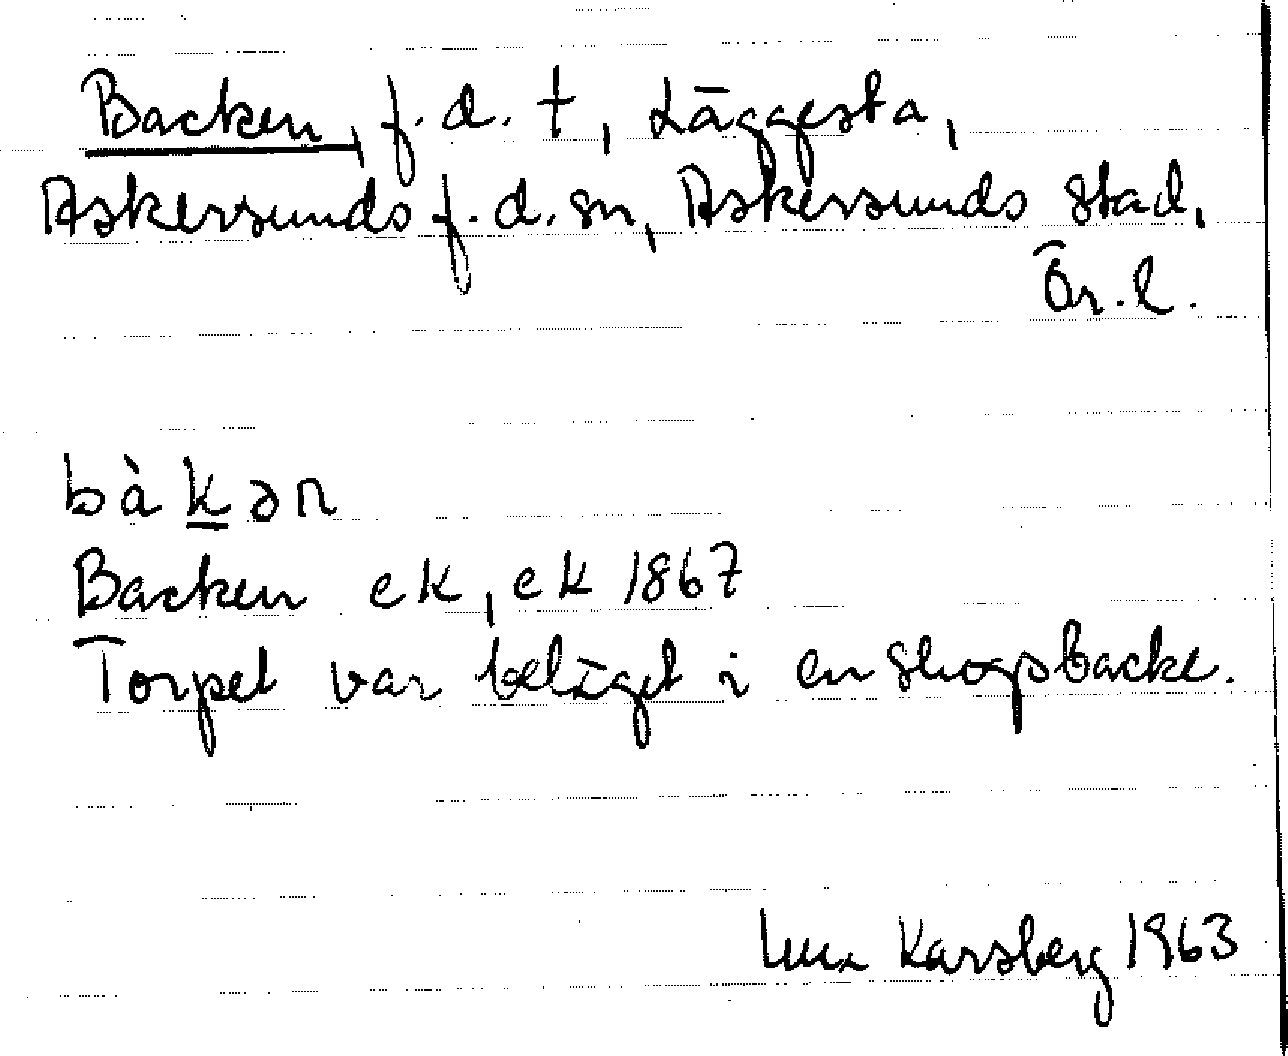 Backen, f.d. t, Läggesta,
Askersunds f.d. sn, Askersunds stad,
Ör. l.
bàkən
Backen ek, ek 1867
Torpet var beläget i en skogsbacke.
Karsberg 1963